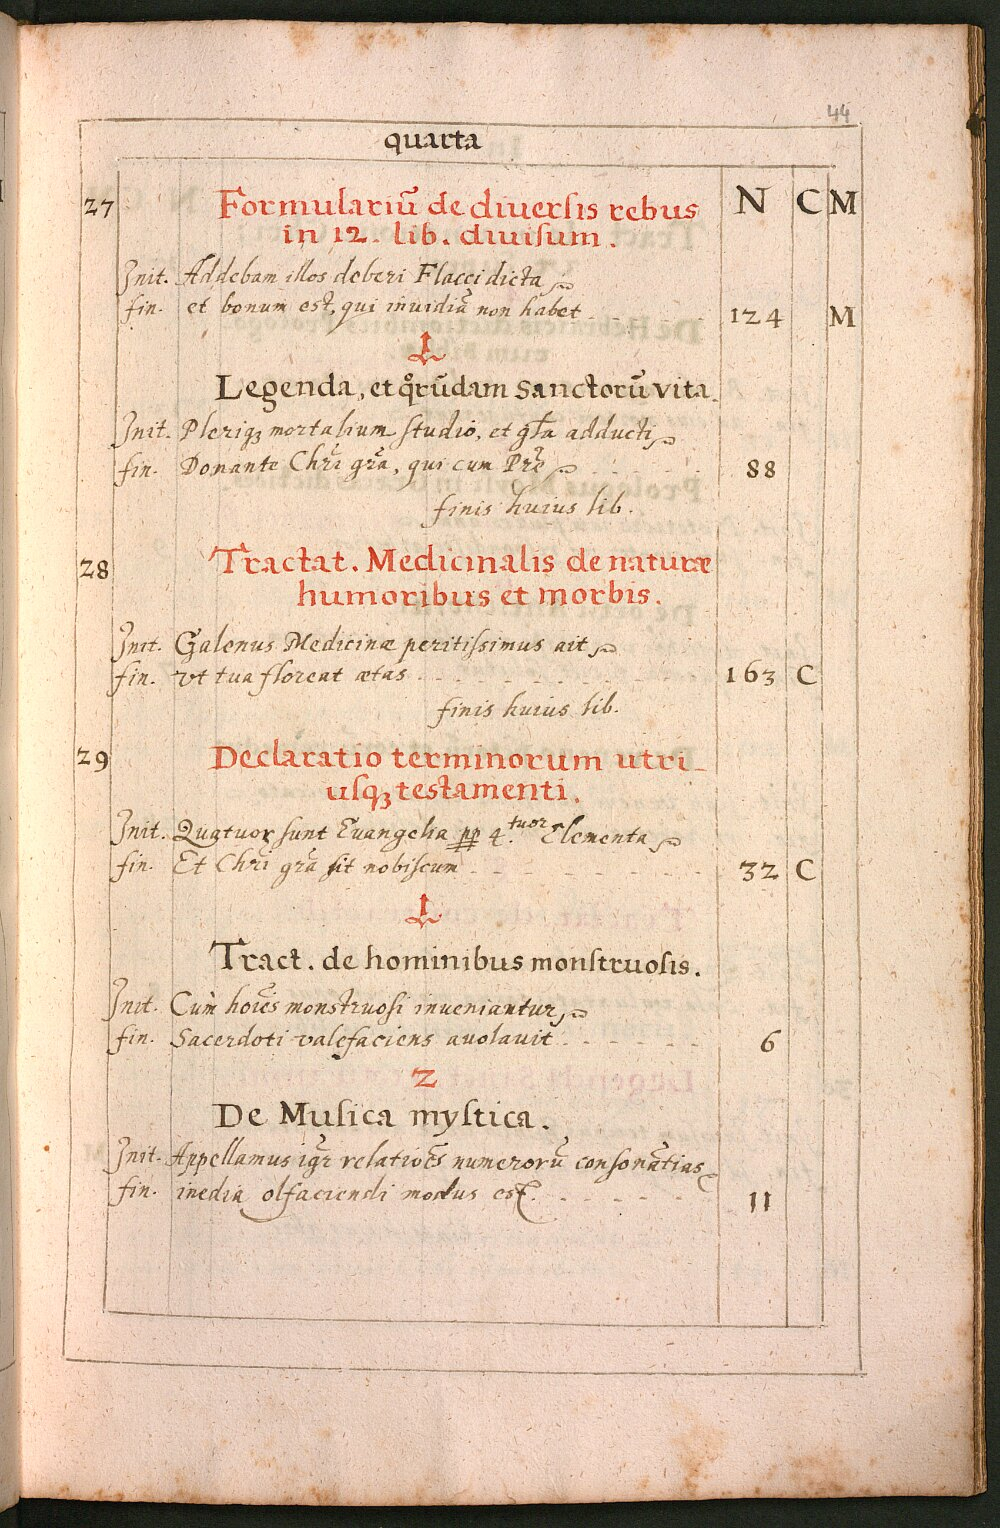 44
quarta
N C M
27 Formulariū de diuersis rebus
in 12. lib. diuisum.
Init. Addebam illos deberi Flacci dicta
fin. et bonum est, qui inuidiā non habet 124 M
1
Legenda, et qͦrūdam Sanctorū vita.
Init. Pleriqꝫ mortalium studio, et gľa adducti
fin. Donante Chrī grā, qui cum Pr̄e 88
finis huius lib.
28 Tractat. Medicinalis de naturæ
humoribus et morbis.
Init. Galenus Medicinæ peritissimus ait
fin. vt tua floreat ætas 163 C
finis huius lib.
29 Declaratio terminorum utri-
usqꝫ testamenti.
Init. Quatuor sunt Euangelia pp̱ 4.tuor Elementa
fin. Et Chrī grā sit nobiscum 32 C
1
Tract. de hominibus monstruosis.
Init. Cum hoīes monstruosi inueniantur
fin. Sacerdoti valefaciens auolauit 6
2
De Musica mystica.
Init. Appellamus igr̄ relatiōes numerorū consonātias
fin. inedia olfaciendi modus est. 11